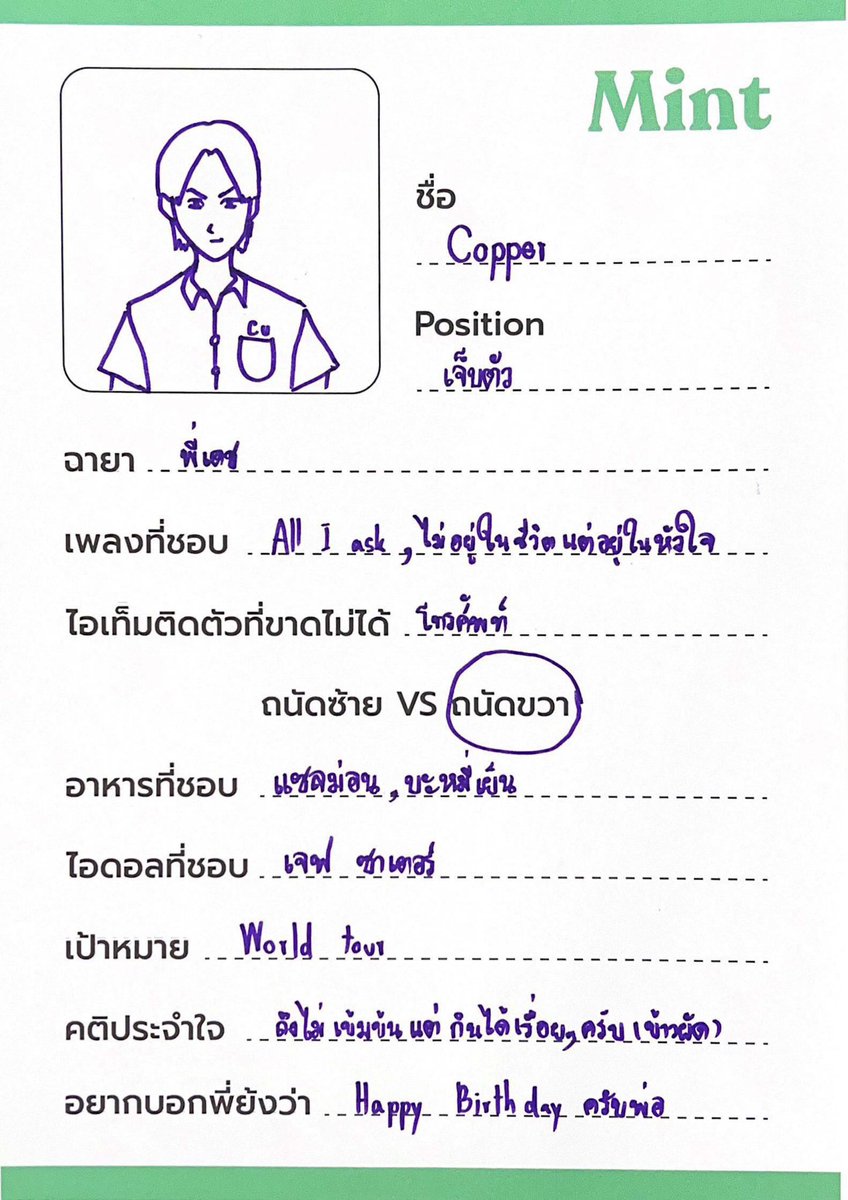 Mint
ชื่อ
Copper
Position
เจ็บตัว
Cu
ฉายา พี่เดช
เพลงที่ชอบ All I ask , ไม่อยู่ในชีวิตแต่อยู่ในหัวใจ
ไอเท็มติดตัวที่ขาดไม่ได้ โทรศัพท์
ถนัดซ้าย VS ถนัดขวา
อาหารที่ชอบ แซลม่อน , บะหมี่เย็น
ไอดอลที่ชอบ เจฟ ซาเตอร์
เป้าหมาย World tour
คติประจำใจ ถึงไม่เข้มข้นแต่กินได้เรื่อยๆครับ (ข้าวผัด)
อยากบอกพี่ย้งว่า Happy Birthday ครับพ่อ